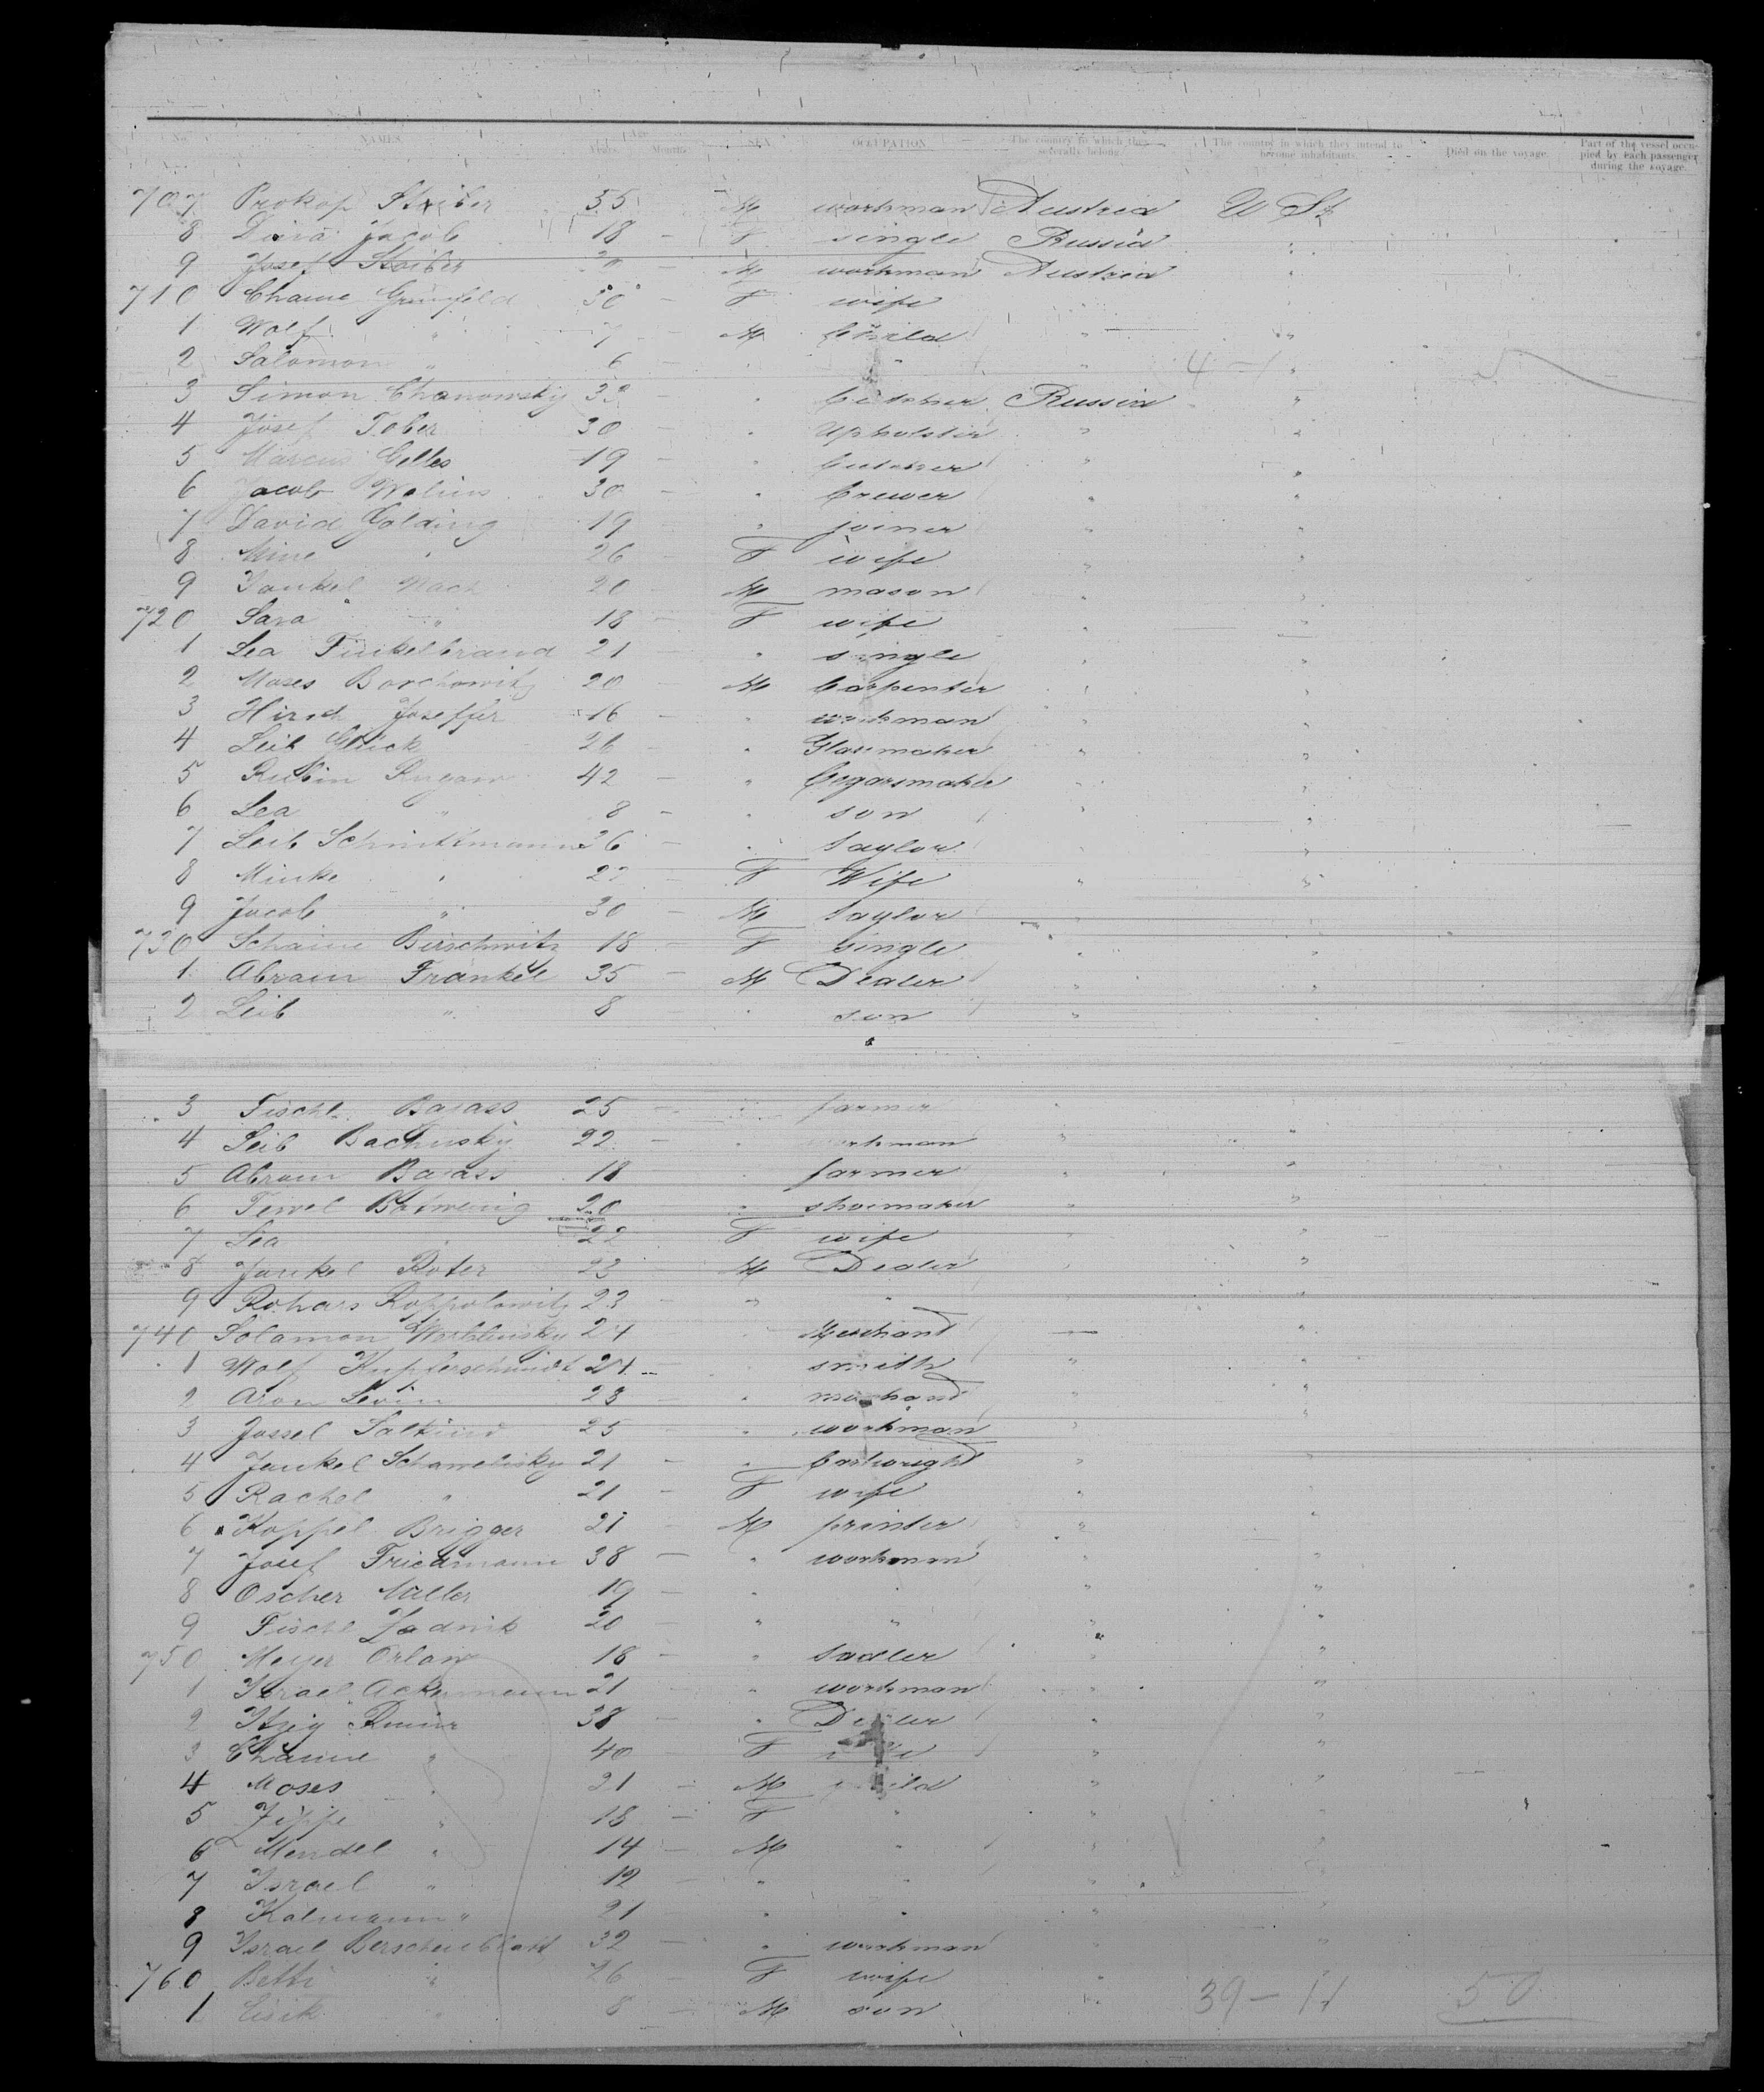 No. NAMES. Age Years Months SEX OCCUPATION The country to which they severally belong. The country in which they intend to become inhabitants. Died on the voyage. Part of the vessel occupied by each passenger during the voyage.
707 Prokop Stxiber 55 M workman Austria U St
8 Jacob 18 - F single Russia "
9 Josef Stoiber - M workman Austria "
710 Chawe Grünfeld 30 - F wife
1 Wolf " 7 - M Child " "
2 Salomon " 6 - " " " 4 - 1 "
3 Simon Chanowsky 33 - " Butcher Russia "
4 Josef Tober 30 - " Upholster " "
5 Marcus Gelles 19 - " butcher " "
6 Jacob Wolins 30 - " brewer " "
7 David Golding 19 " joiner "
8 Mine " 26 - F wife " "
9 Jankel Wach 20 M mason " "
720 Sara " 18 - F wife " "
1 Lea Finkelbrand 21 " single " "
2 Moses Borchowitz 20 M Carpenter " "
3 Hirsch Joseffer 16 - " workman " "
4 Leib Glück 26 - " Glasmaker " "
5 Rubin 42 - " Cegarsmaker " "
6 Lea " 8 - " son " "
7 Leib Schnittmann 26 - " taylor " "
8 Minke " F Wife " "
9 Jacob " 30 - M taylor "
730 Schaine Berschwitz 18 - F single " "
1 Abram Frankel 35 - M Dealer " "
2 Leib " 8 " son " "
3 Fischl Bajass 25 - " farmer "
4 Leib Bachusky 22 - " workman " "
5 Abram Bajass 18 " farmer " "
6 Tewel Botwenig 20 " shoemaker " "
7 Lea " 22 F wife "
8 Jankel Roter 23 M Dealer " "
9 Koppolowitz 23 - " " "
740 Solamon 21 " Merchant "
1 Wolf Kupferschmidt 21 - smith " "
2 Aron Levin 23 - " merchand " "
3 Jossel Salkind 25 - " workman " "
4 Jankel Schamelisky 21 - " Cartwright "
5 Rachel " 21 - F wife "
6 Koppel Brigger 21 - M printer " "
7 Josef Friedmann 38 - " workman " "
8 Oscher Miller 19 - " " " "
9 Fischl Zadnik 20 - " " " "
750 Meyer Orlan 18 - " Sadler " "
1 Israel Ackermann 21 - " workman " "
2 Itzig 38 - " Dealer " "
3 Chaine " 40 F wife " "
4 Moses " 21 - M child " "
5 Zippe " 18 - F " " "
6 Mendel " 14 - M " " "
7 Israel " 12 - " " "
8 Kalmann " 21 - " " " "
9 Israel Berschenblatt 32 - " workman " "
760 Betti " 26 - F wife " 39 - 11 50
1 " 8 - M son "